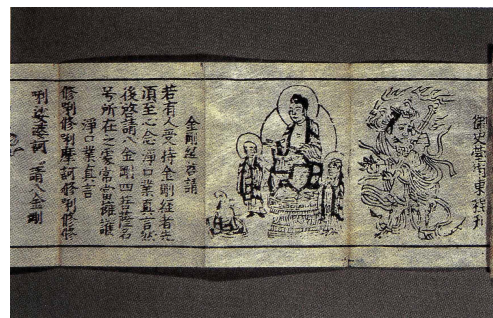 御史臺南東程升
金剛經啓請
若有人受持金剛經者先
須至心念淨口業真言然
後啓請八金剛四菩薩名
号所在之處常當擁護
淨口業真言
修唎修唎摩訶修唎修修
唎娑婆訶 請八金剛